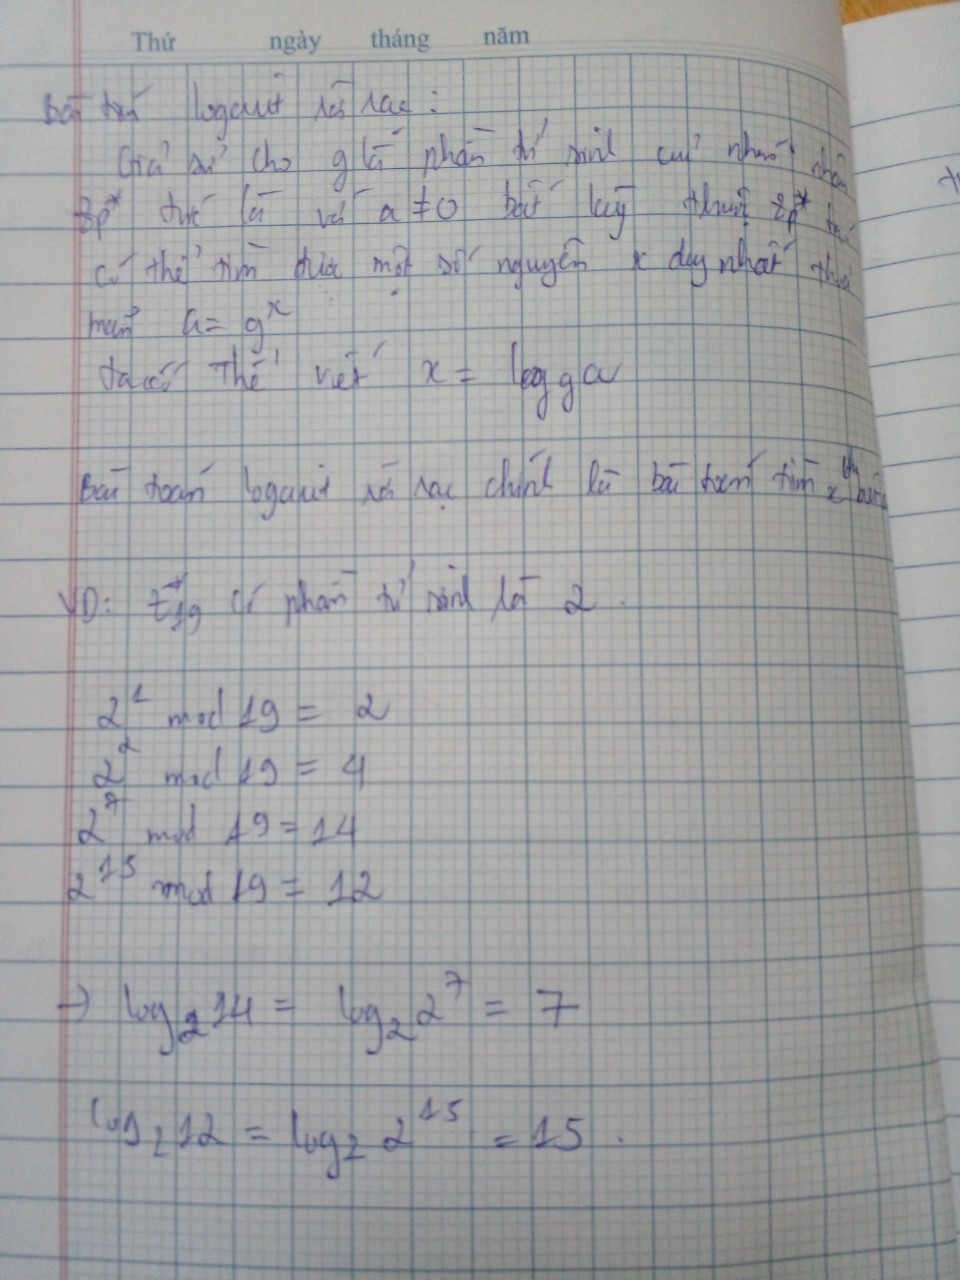 Thứ ngày tháng năm
Bài toán logarit rời rạc :
Giả sử cho g là phần tử sinh của nhóm nhân
Zp* tức là với a ≠ 0 bất kỳ thuộc Zp* ta
có thể tìm được một số nguyên x duy nhất thoả
mãn a = g^x
ta có thể viết x = log_g a
Bài toán logarit rời rạc chính là bài toán tìm x
VD: Z*_19 có phần tử sinh là 2 .
2^1 mod 19 = 2
2^2 mod 19 = 4
2^7 mod 19 = 14
2^15 mod 19 = 12
→ log_2 14 = log_2 2^7 = 7
log_2 12 = log_2 2^15 = 15 .